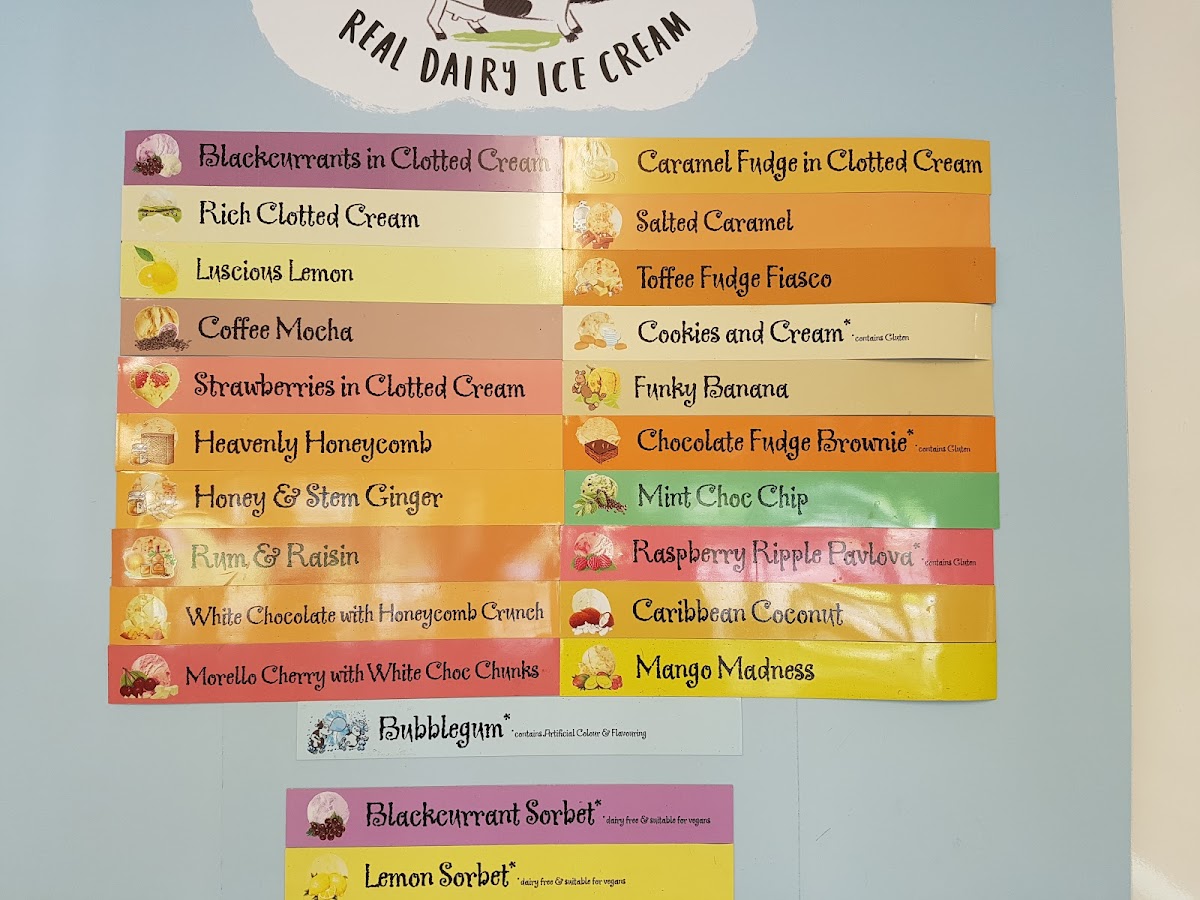 REAL DAIRY ICE CREAM
Blackcurrants in Clotted Cream
Rich Clotted Cream
Luscious Lemon
Coffee Mocha
Strawberries in Clotted Cream
Heavenly Honeycomb
Honey & Stem Ginger
Rum & Raisin
White Chocolate with Honeycomb Crunch
Morello Cherry with White Choc Chunks
Caramel Fudge in Clotted Cream
Salted Caramel
Toffee Fudge Fiasco
Cookies and Cream* *contains Gluten
Funky Banana
Chocolate Fudge Brownie* *contains Gluten
Mint Choc Chip
Raspberry Ripple Pavlova* *contains Gluten
Caribbean Coconut
Mango Madness
Bubblegum* *contains Artificial Colour & Flavouring
Blackcurrant Sorbet* *dairy free & suitable for vegans
Lemon Sorbet* *dairy free & suitable for vegans